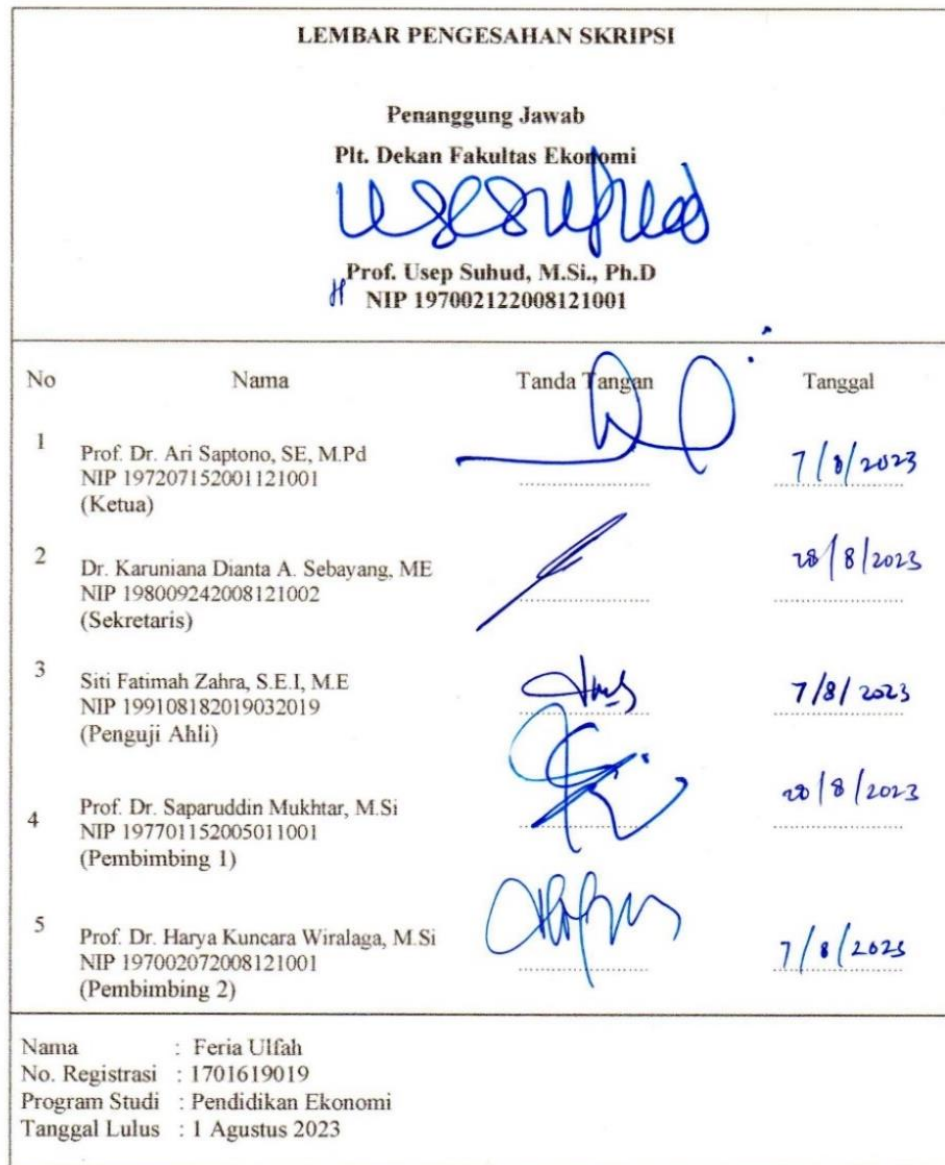 LEMBAR PENGESAHAN SKRIPSI
Penanggung Jawab
Plt. Dekan Fakultas Ekonomi
Prof. Usep Suhud, M.Si., Ph.D
NIP 197002122008121001
No Nama Tanda Tangan Tanggal
1 Prof. Dr. Ari Saptono, SE, M.Pd
NIP 197207152001121001 .................... 7/8/2023
(Ketua)
2 Dr. Karuniana Dianta A. Sebayang, ME 28/8/2023
NIP 198009242008121002 ....................
(Sekretaris)
3 Siti Fatimah Zahra, S.E.I, M.E 7/8/2023
NIP 199108182019032019 ....................
(Penguji Ahli)
4 Prof. Dr. Saparuddin Mukhtar, M.Si /8/2023
NIP 197701152005011001 ....................
(Pembimbing 1)
5 Prof. Dr. Harya Kuncara Wiralaga, M.Si 7/8/2023
NIP 197002072008121001 ....................
(Pembimbing 2)
Nama : Feria Ulfah
No. Registrasi : 1701619019
Program Studi : Pendidikan Ekonomi
Tanggal Lulus : 1 Agustus 2023